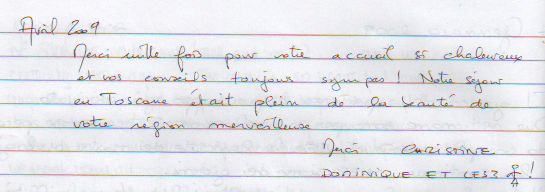 Avril 2009
Merci mille fois pour votre accueil si chaleureux
et vos conseils toujours sympas ! Notre séjour
en Toscane était plein de la beauté de
votre région merveilleuse
Merci CHRISTINE
DOMINIQUE ET LES 2 !